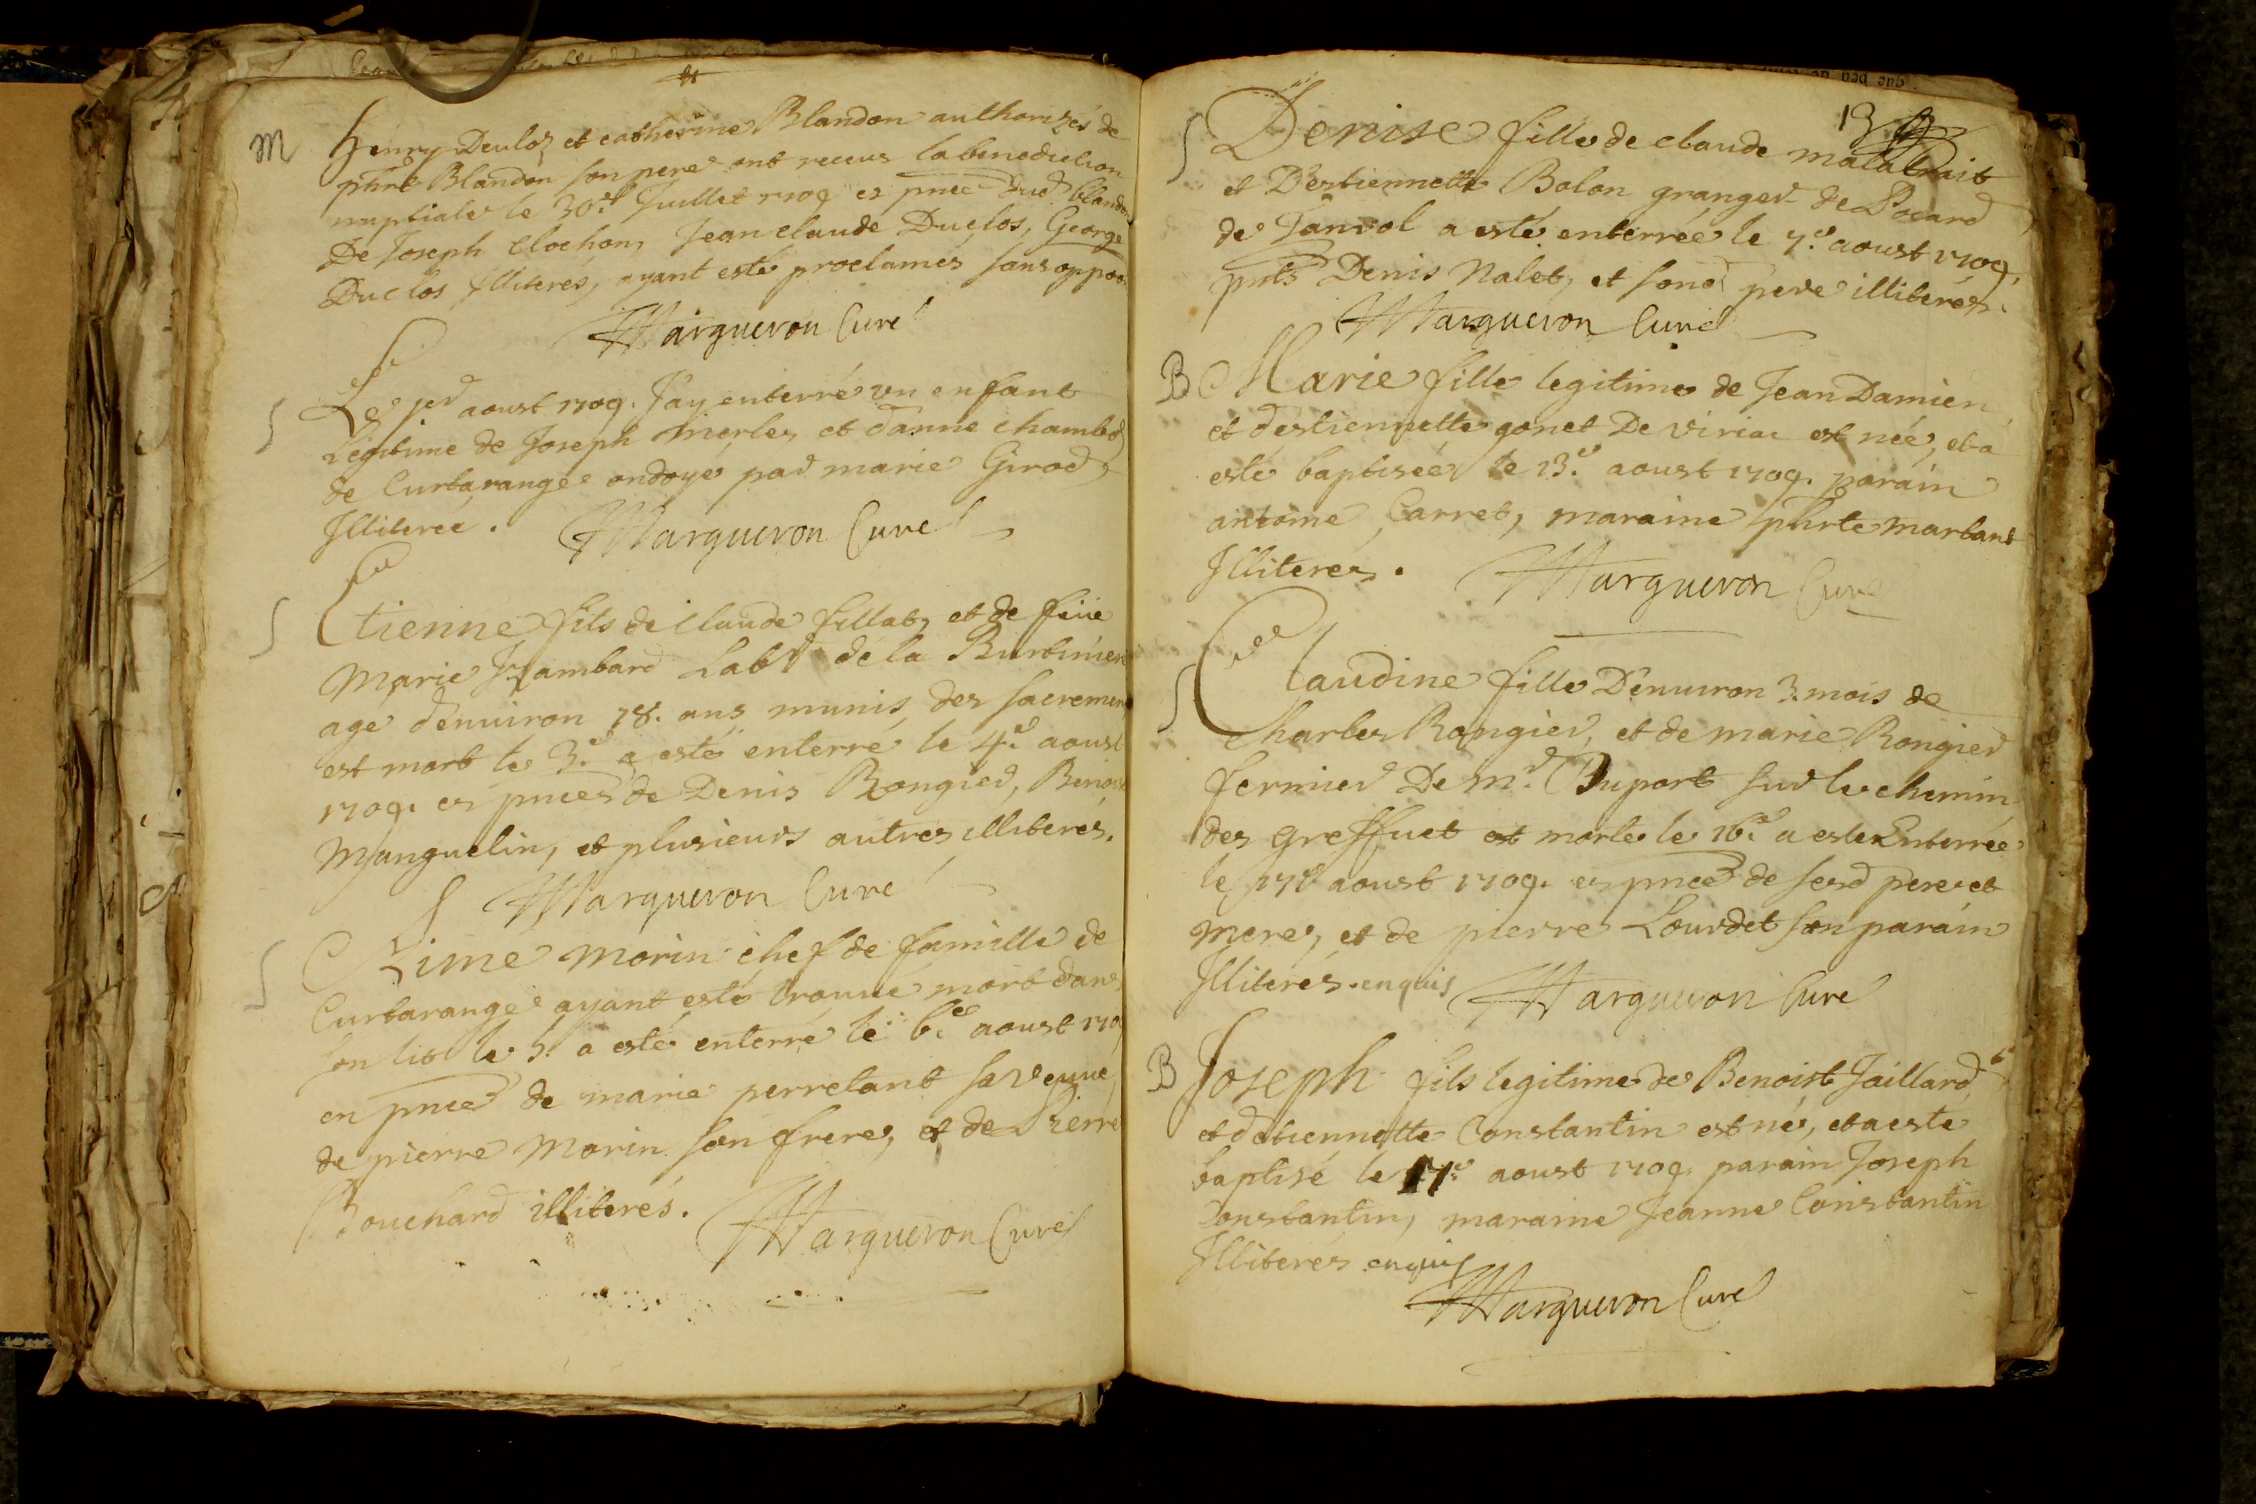 M
henry Deuloz et catherine Blandon authorizés de
phrt Blandon son pere ont receus la benediction
nuptiale le 30.e Juillet 1709 es pnce dud. blandon
De Joseph Clochon, Jean claude Duclos, George
Duclos Illiterés, ayant esté proclamés sans oppoon.
Margueron Curé
S
Le jer aoust 1709. J'ay enterré un enfant
Legitime de Joseph merles et d'anne chambod
de Curtarange ondoyé par marie Girod,
Illiterée. Margueron Curé
S
Etienne fils de Claude fillat, et de feüe
Marie Jambard Labr de la Burtiniere
age d'enuiron 78. ans munis des sacremens
est mort le 3.e a esté enterré le 4.e aoust
1709. es pnces de Denis Rongier, Benoist
Manguelin, et plusieurs autres illiterés.
Margueron Curé
S
Morin chef de famille de
Curtarange ayant esté trouué mort dans
son lit le 5. a esté enterré le 6.e aoust 1709
en pnce de marie perretant sa veuue,
de pierre Morin son frere, et de Pierre
Bouchard illiterés. Margueron Curé
19
S
Denise fille de claude malatrait
et D'estiennette Bolon granger de Bocard
de Janvol a esté enterrée le 7.e aoust 1709,
pnts Denis Nalet, et sond pere illiterés.
Margueron Curé
B
Marie fille legitime de Jean Damien
et d'estiennette gonet De viriac est née, et a
esté baptisée le 13.e aoust 1709. parain
antoine Carret, maraine phrte marband
Illiterés. Margueron Curé
S
Claudine fille D'enuiron 3. mois de
Charles Rongier, et de marie Rongier
fermier De Mr. Duport sur le chemin
des greffuet est morte le 16.e a este Enterrée
le 17e aoust 1709. es pnce de sesd pere et
mere, et de pierre Lourdet son parain
Illiterés. enquis Margueron Curé
B
Joseph fils legitime de Benoist Jaillard
et d'etiennette Constantin est né, et a esté
baptisé le 17.e aoust 1709. parain Joseph
Constantin, maraine Jeanne Constantin
Illiterés enquis
Margueron Curé